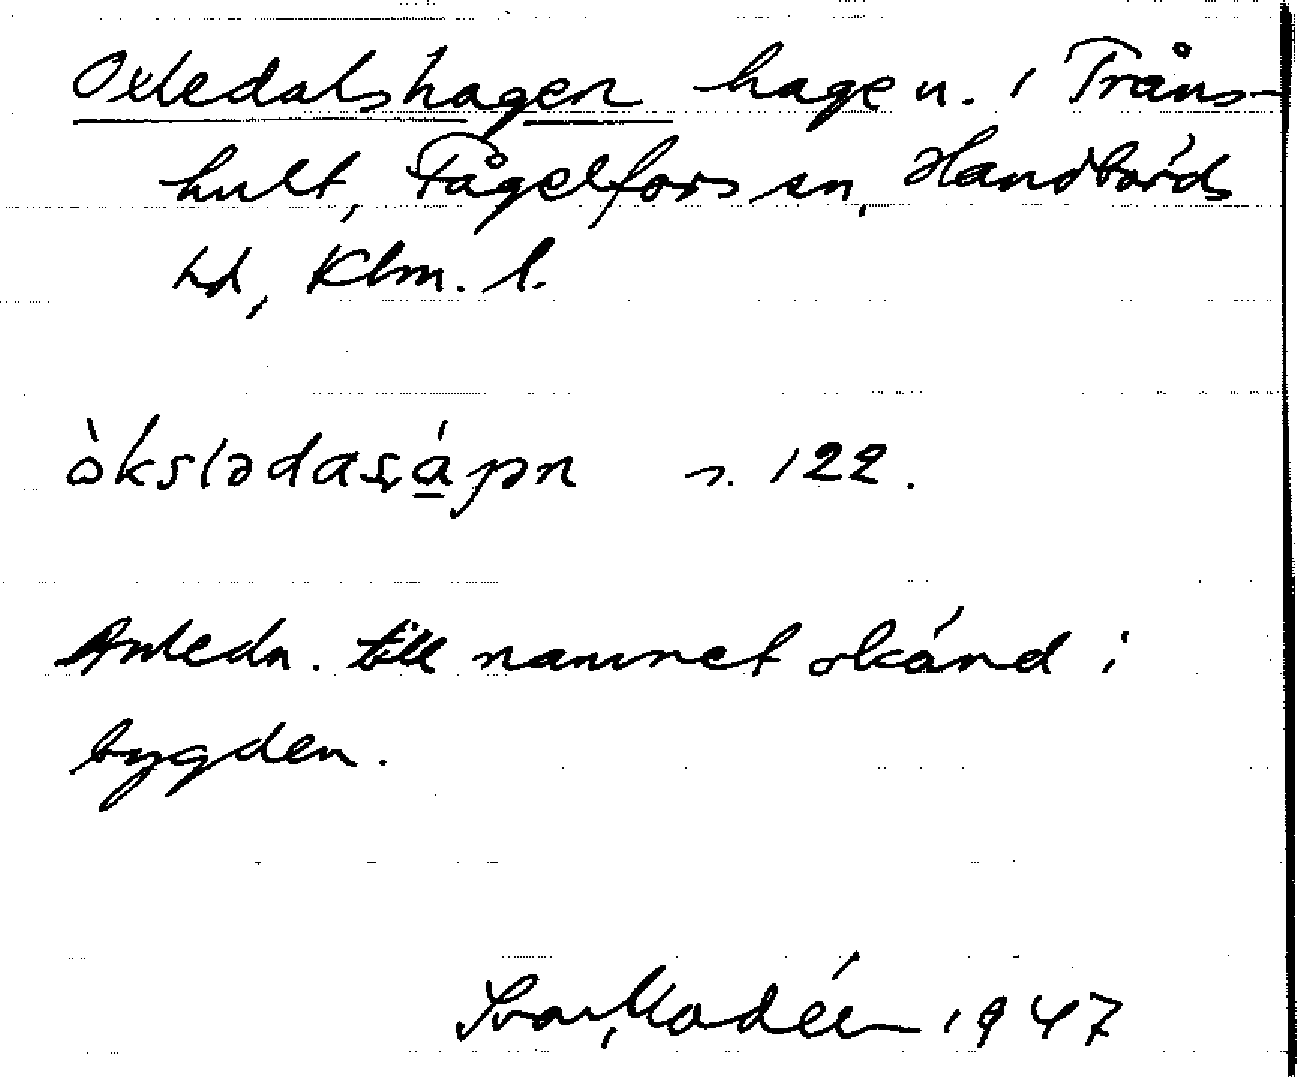 Oxledalshagen hage n. i Tråns-
hult, Fågelfors sn, Handbörds
hd, Klm. l.
òkslədasạápn n. 122.
Anledn. till namnet okänd i
bygden.
Ivar Modéer 1947